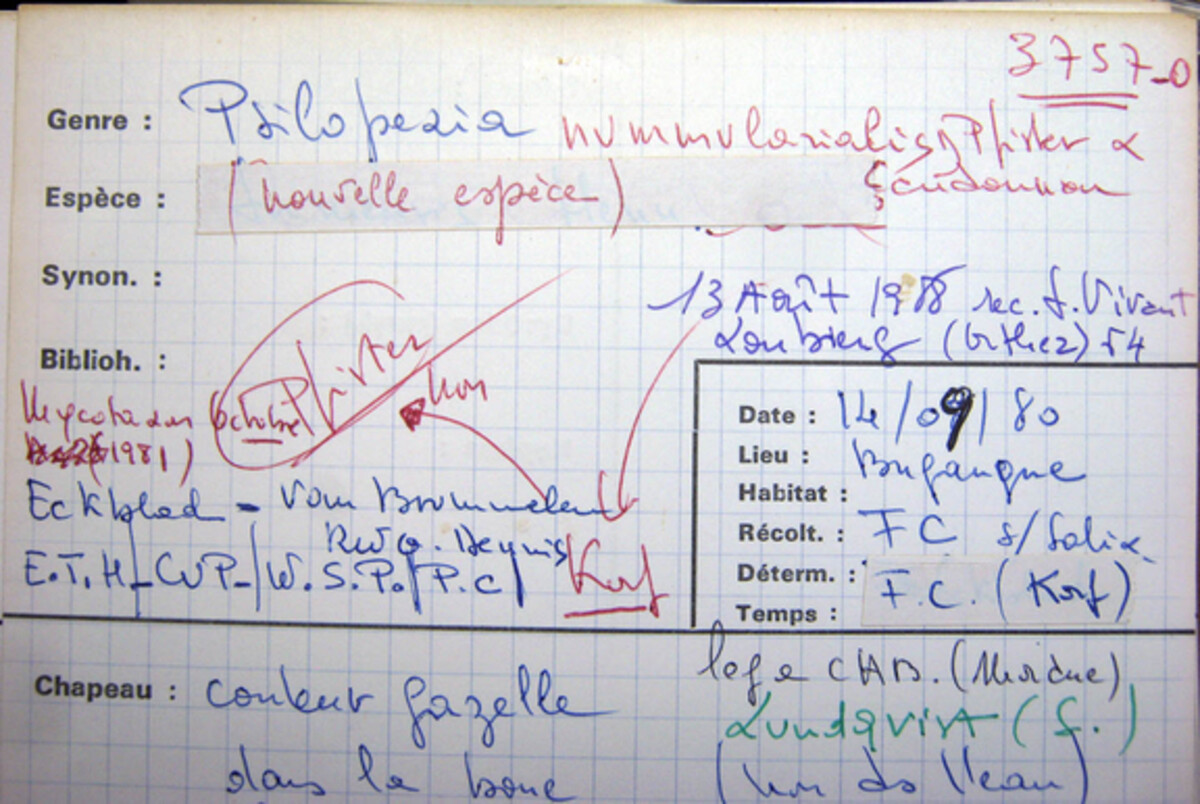 3757-0
Genre : Psilopezia nummularialis Pfister &
Espèce : (nouvelle espèce) Candoussau
Synon. :
13 Août 1988 rec. J. Vivant
Loubieng (Orthez) 64
Biblioh. : Pfister non
Mycotaxon (octobre
1981)
Eckblad - Van Brummelen
Dennis
E.T.H - CUP - W.S.P. P.C Korf
Date : 14/09/80
Lieu : Bugangue
Habitat :
Récolt. : FC s/ Salix
Déterm. : F.C. (Korf)
Temps :
Chapeau : couleur gazelle
dans la boue
loge CHAB.
Lundqvist (S.)
(hors de l'eau)